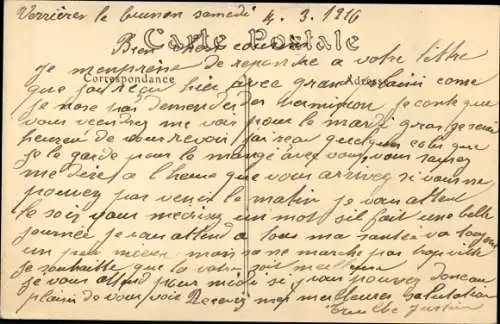 Verrières le buisson samedi 4. 3. 1916
Bien cher cousin
Carte Postale
Je m'enpresse de repondre a votre lettre
Correspondance Adresse
que j'ai reçu hier avec grand plaisir come
je nose pas demender des permission je conte que
vous viendrez me voir pour le mardi gras je serai
heureu de vous revoir j'ai reçu quelques colis que
je le garde pour le mangé avec vous vous saurez
me dire a l'heure que vous arrivez si vous ne
pouvez pas venir le matin je vous attend
le soir vous mecrirez un mot sil fait une belle
journée je vous attend a tous ma santée va toujours
un peu mieux mais sa ne marche pas trop vite
je souhaite que la votre soit meilleure
je vous attend pour midi si vous pouvez donc au
plaisir de vous voir Recevez mes meilleures salutation
Justin